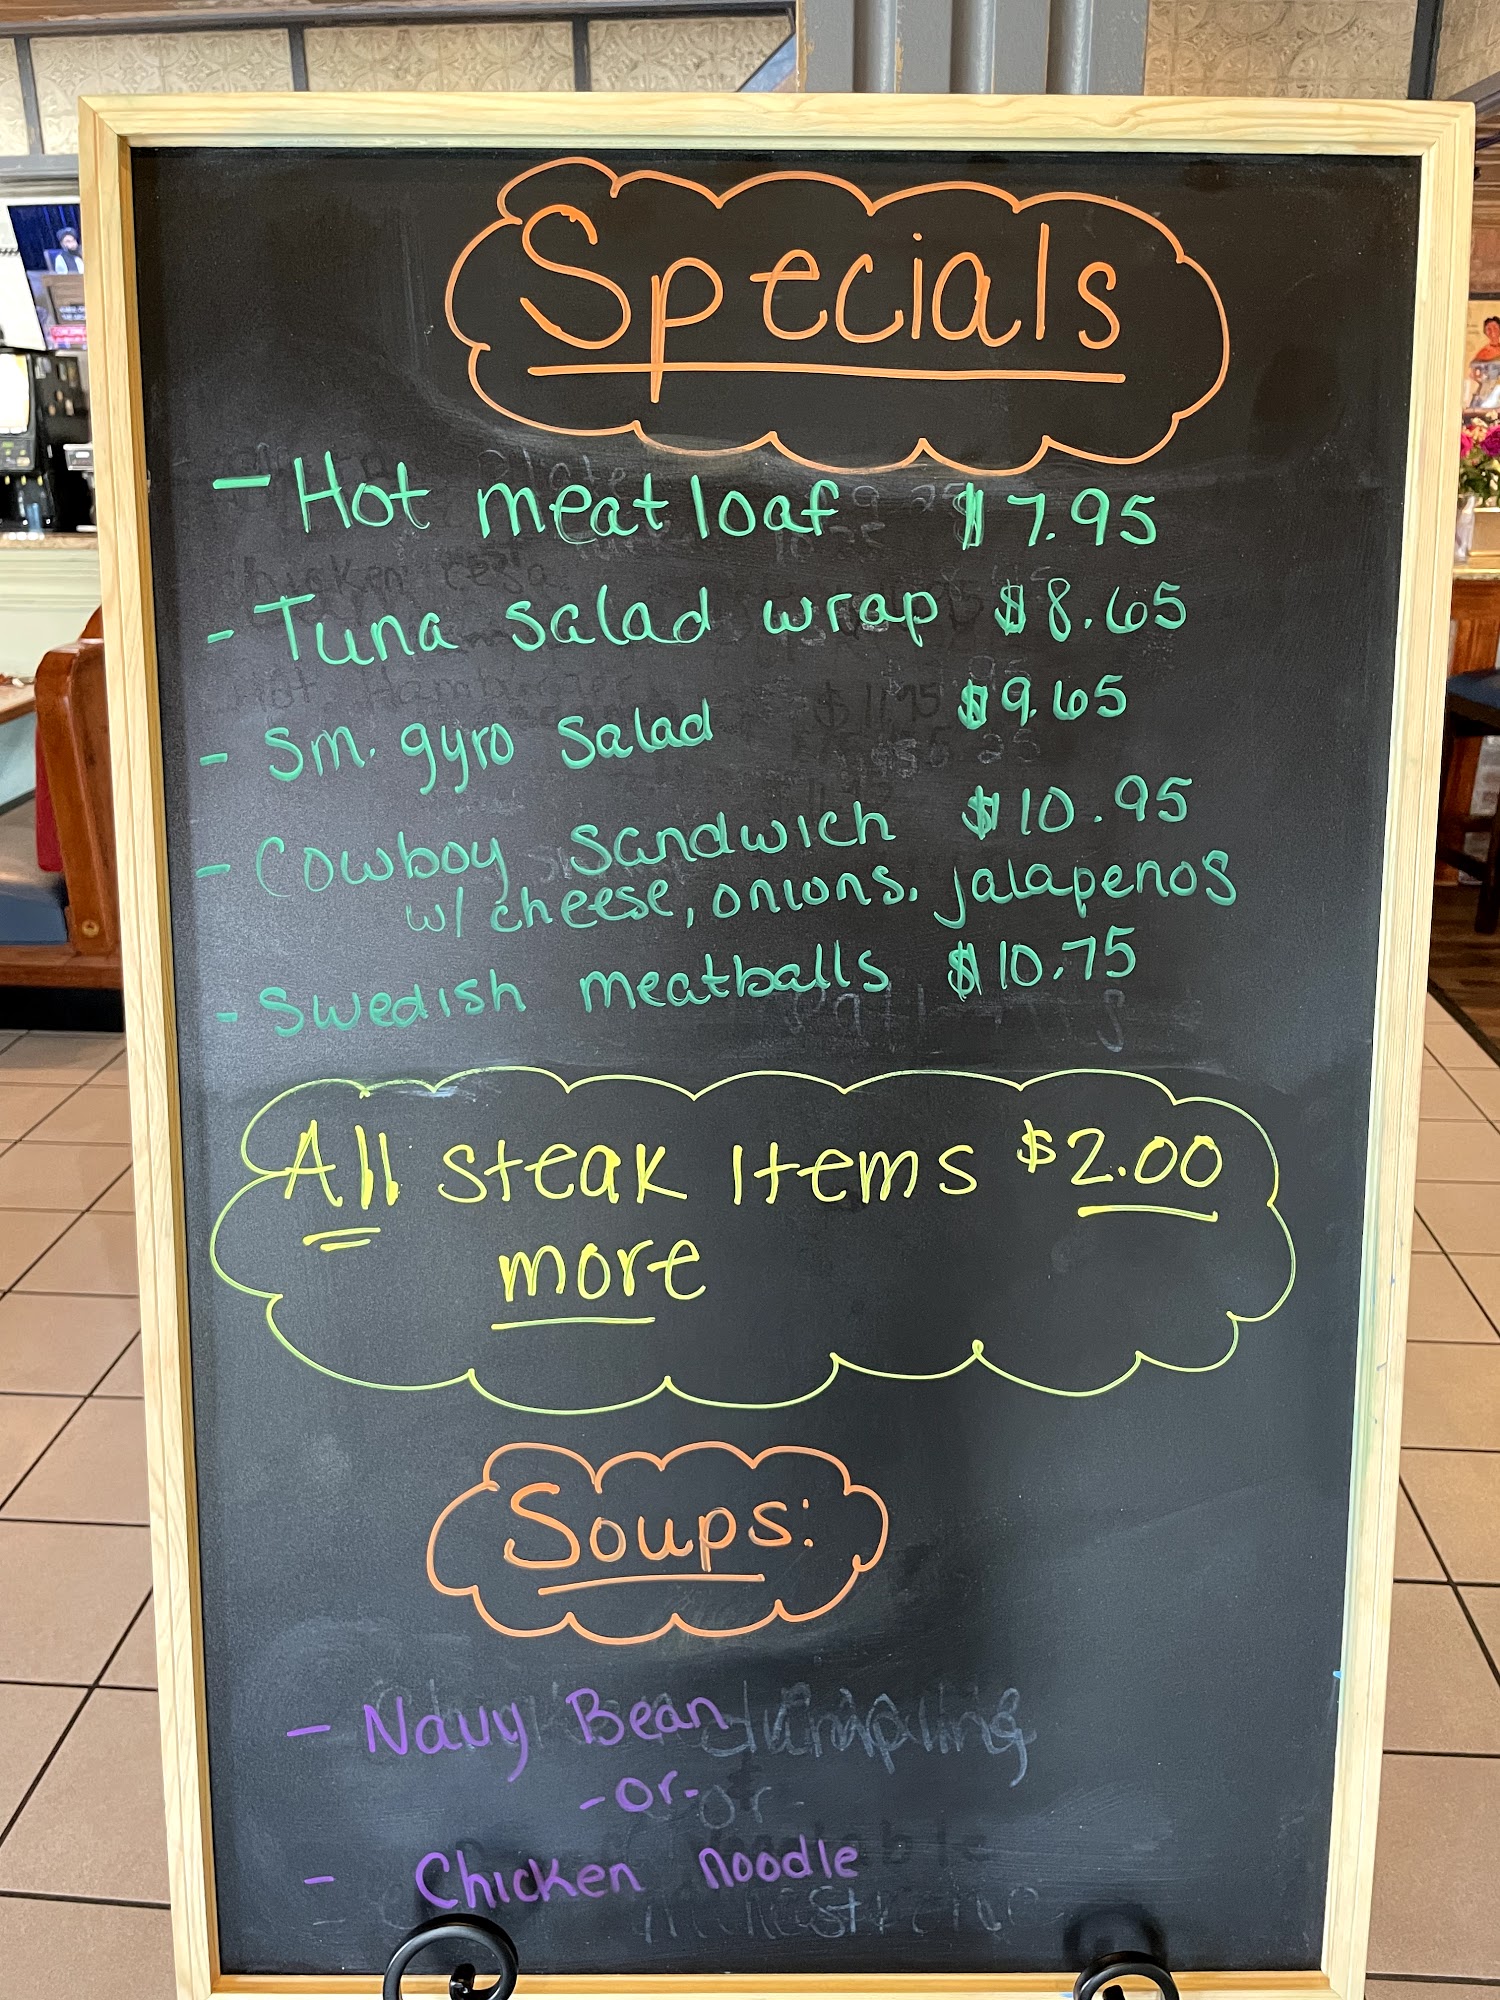 Specials
- Hot meatloaf $7.95
- Tuna salad wrap $8.65
- Sm. gyro salad $9.65
- Cowboy sandwich $10.95
w/ cheese, onions, jalapenos
- Swedish meatballs $10.75
All steak Items $2.00
more
Soups:
- Navy Bean
-or-
- Chicken noodle